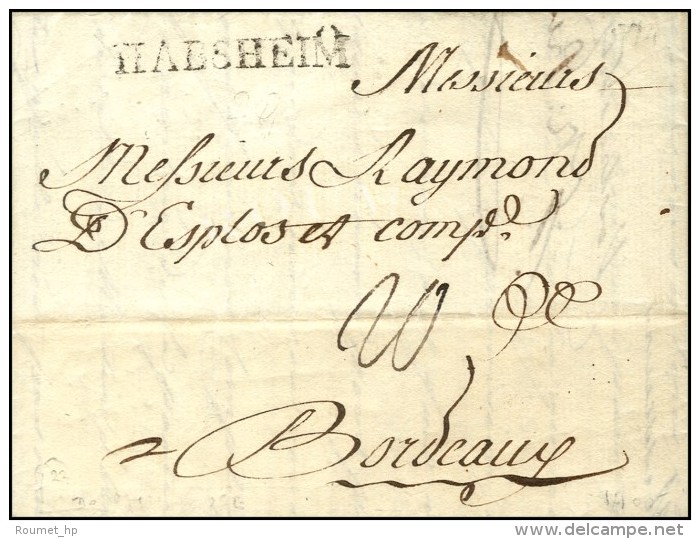 HABSHEIM
Messieurs
Messieurs Raymond
D'Esplos et comp.
20
a Bordeaux
Roumet_hp
© delcampe.net